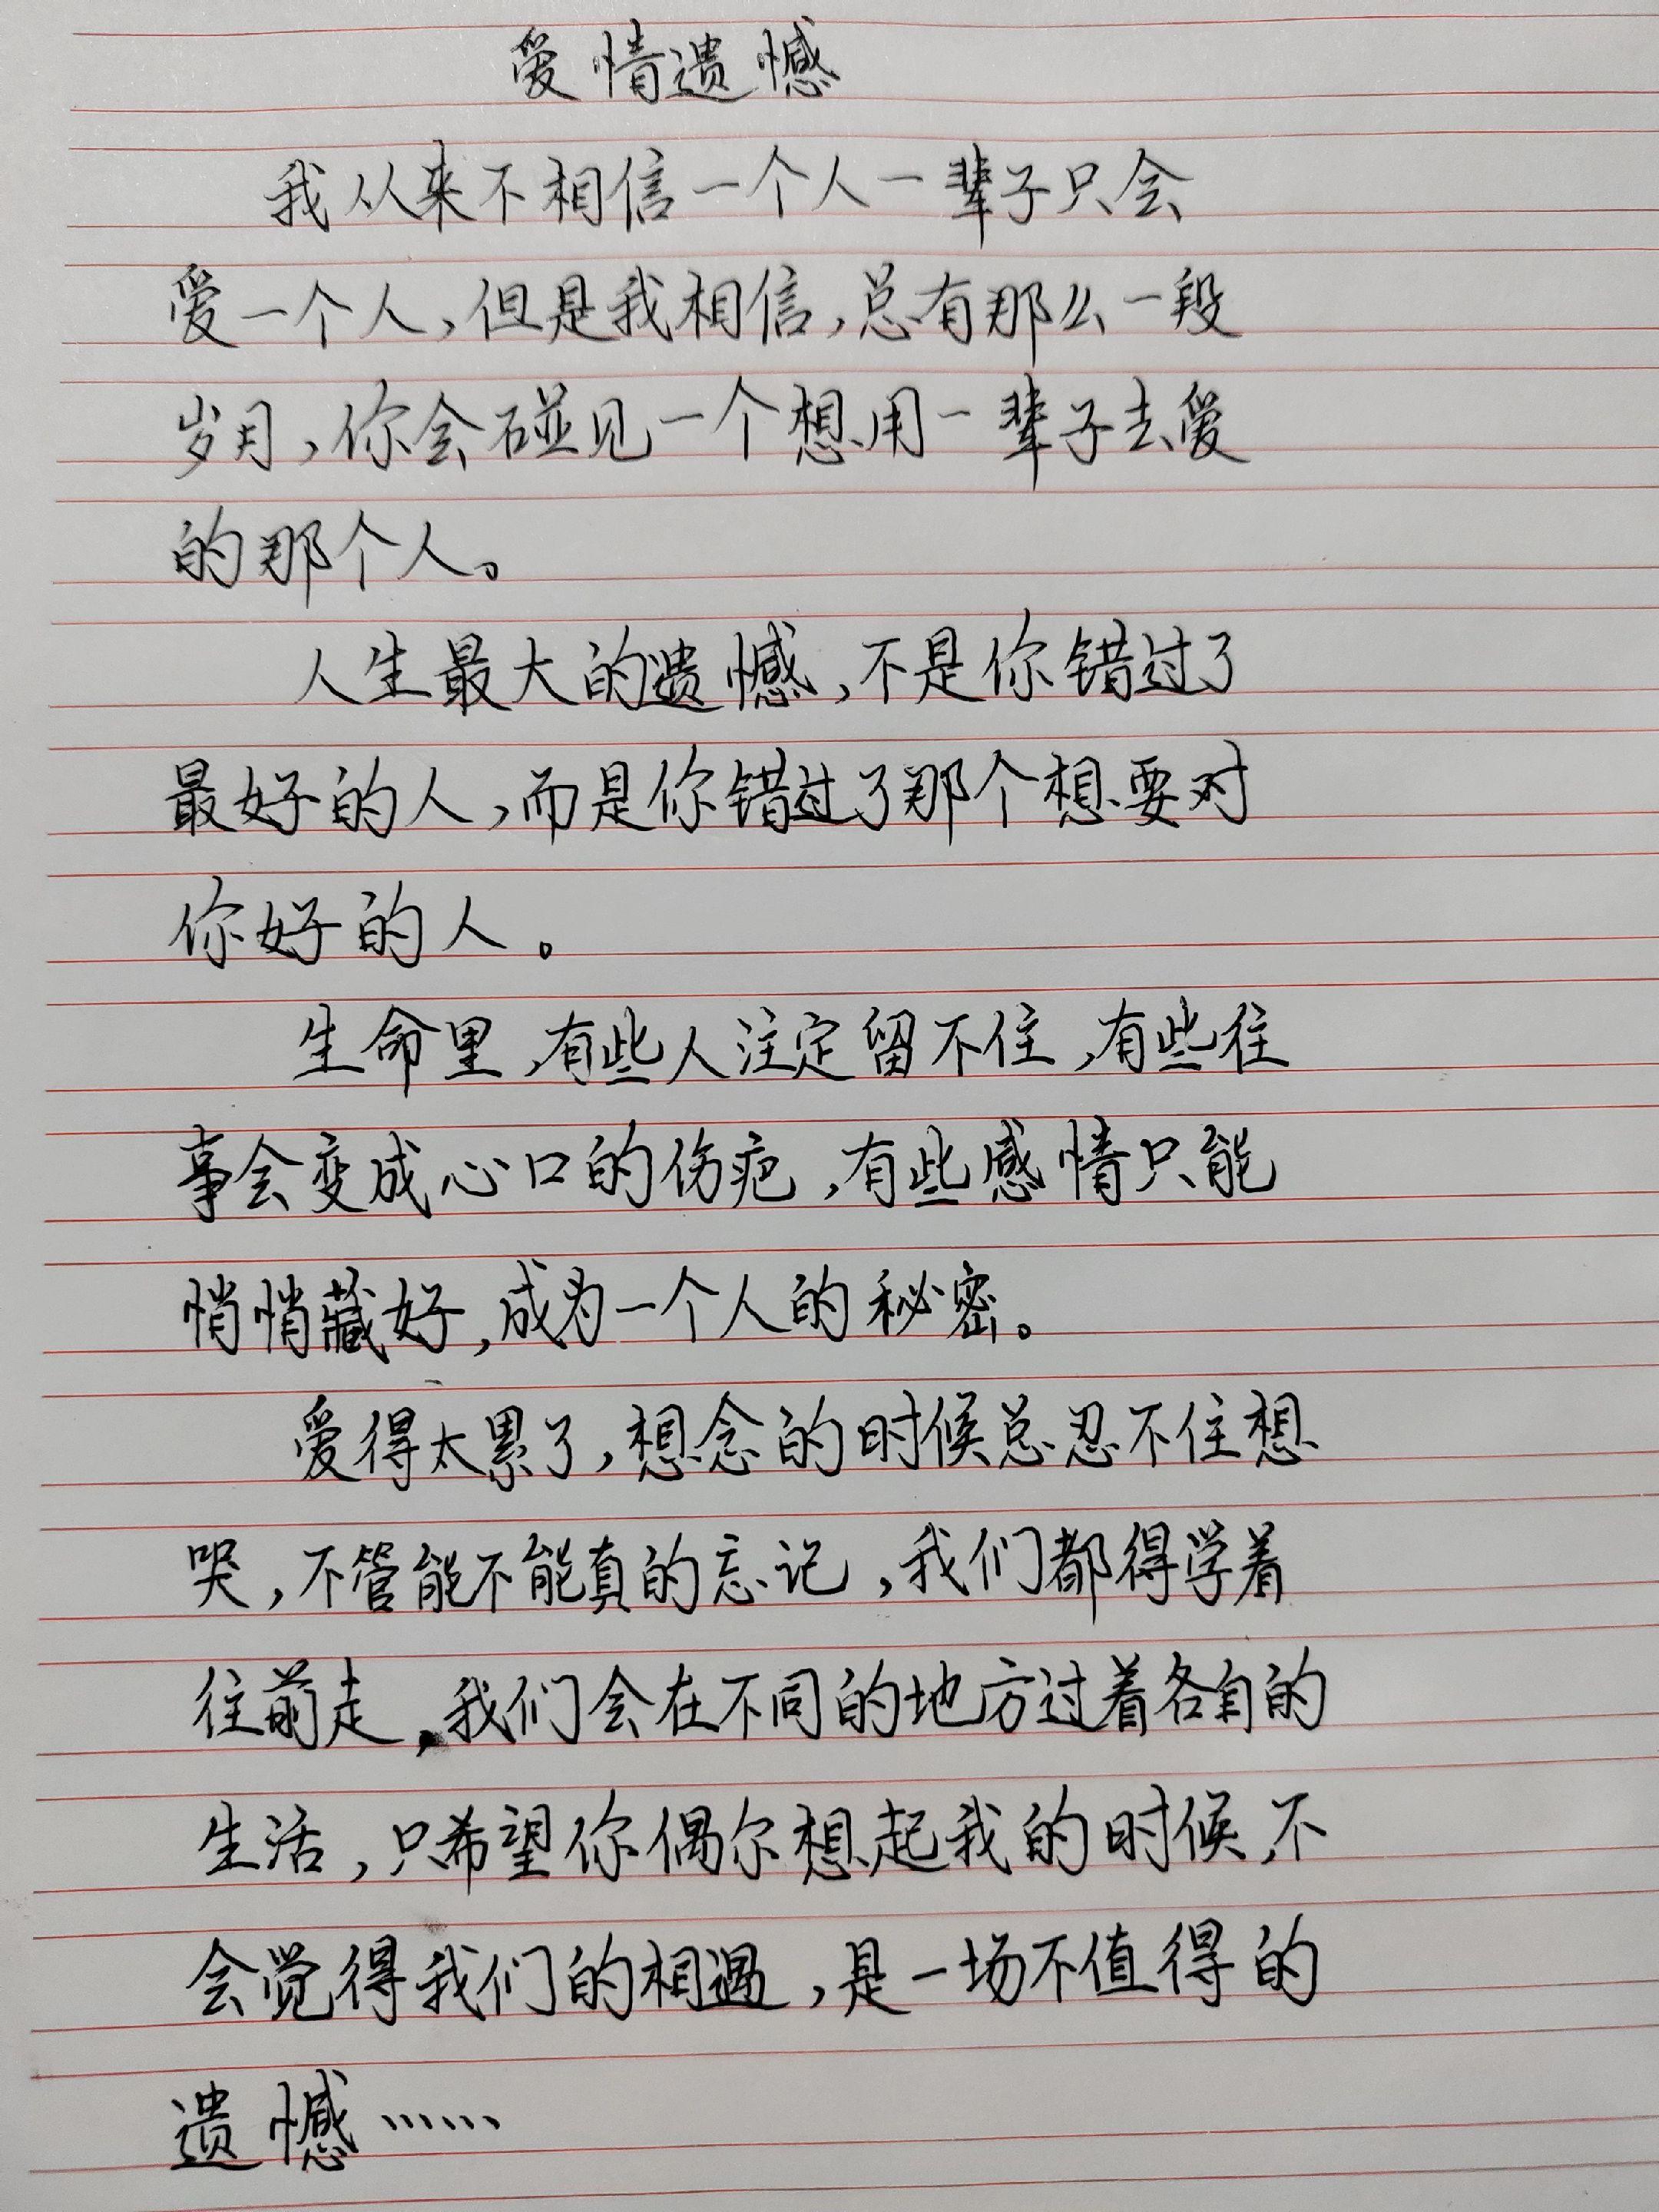 爱情遗憾
我从来不相信一个人一辈子只会
爱一个人,但是我相信,总有那么一段
岁月,你会碰见一个想用一辈子去爱
的那个人。
人生最大的遗憾,不是你错过了
最好的人,而是你错过了那个想要对
你好的人。
生命里,有些人注定留不住,有些往
事会变成心口的伤疤,有些感情只能
悄悄藏好,成为一个人的秘密。
爱得太累了,想念的时候总忍不住想
哭,不管能不能真的忘记,我们都得学着
往前走,我们会在不同的地方过着各自的
生活,只希望你偶尔想起我的时候,不
会觉得我们的相遇,是一场不值得的
遗憾……